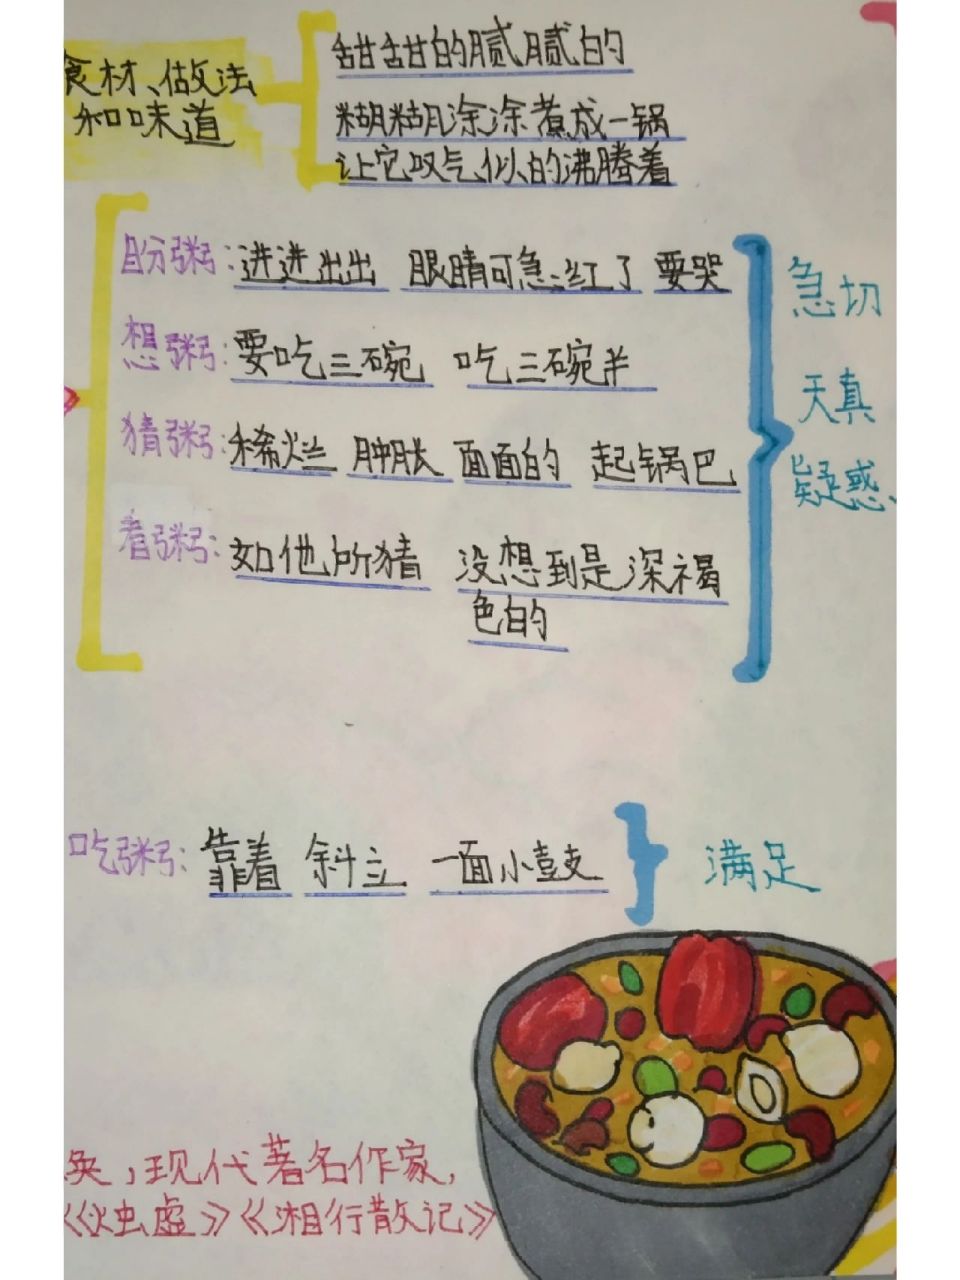 食材、做法
和味道
甜甜的腻腻的
糊糊涂涂煮成一锅
让它叹气似的沸腾着
盼粥:进进出出 眼睛可急红了 要哭
急切
想粥:要吃三碗 吃三碗半
天真
猜粥:稀烂 肿胀 面面的 起锅巴
疑惑
看粥:如他所猜 没想到是深褐
色的
吃粥:靠着 斜立 一面小鼓
满足
焕,现代著名作家,
《烛虚》《湘行散记》